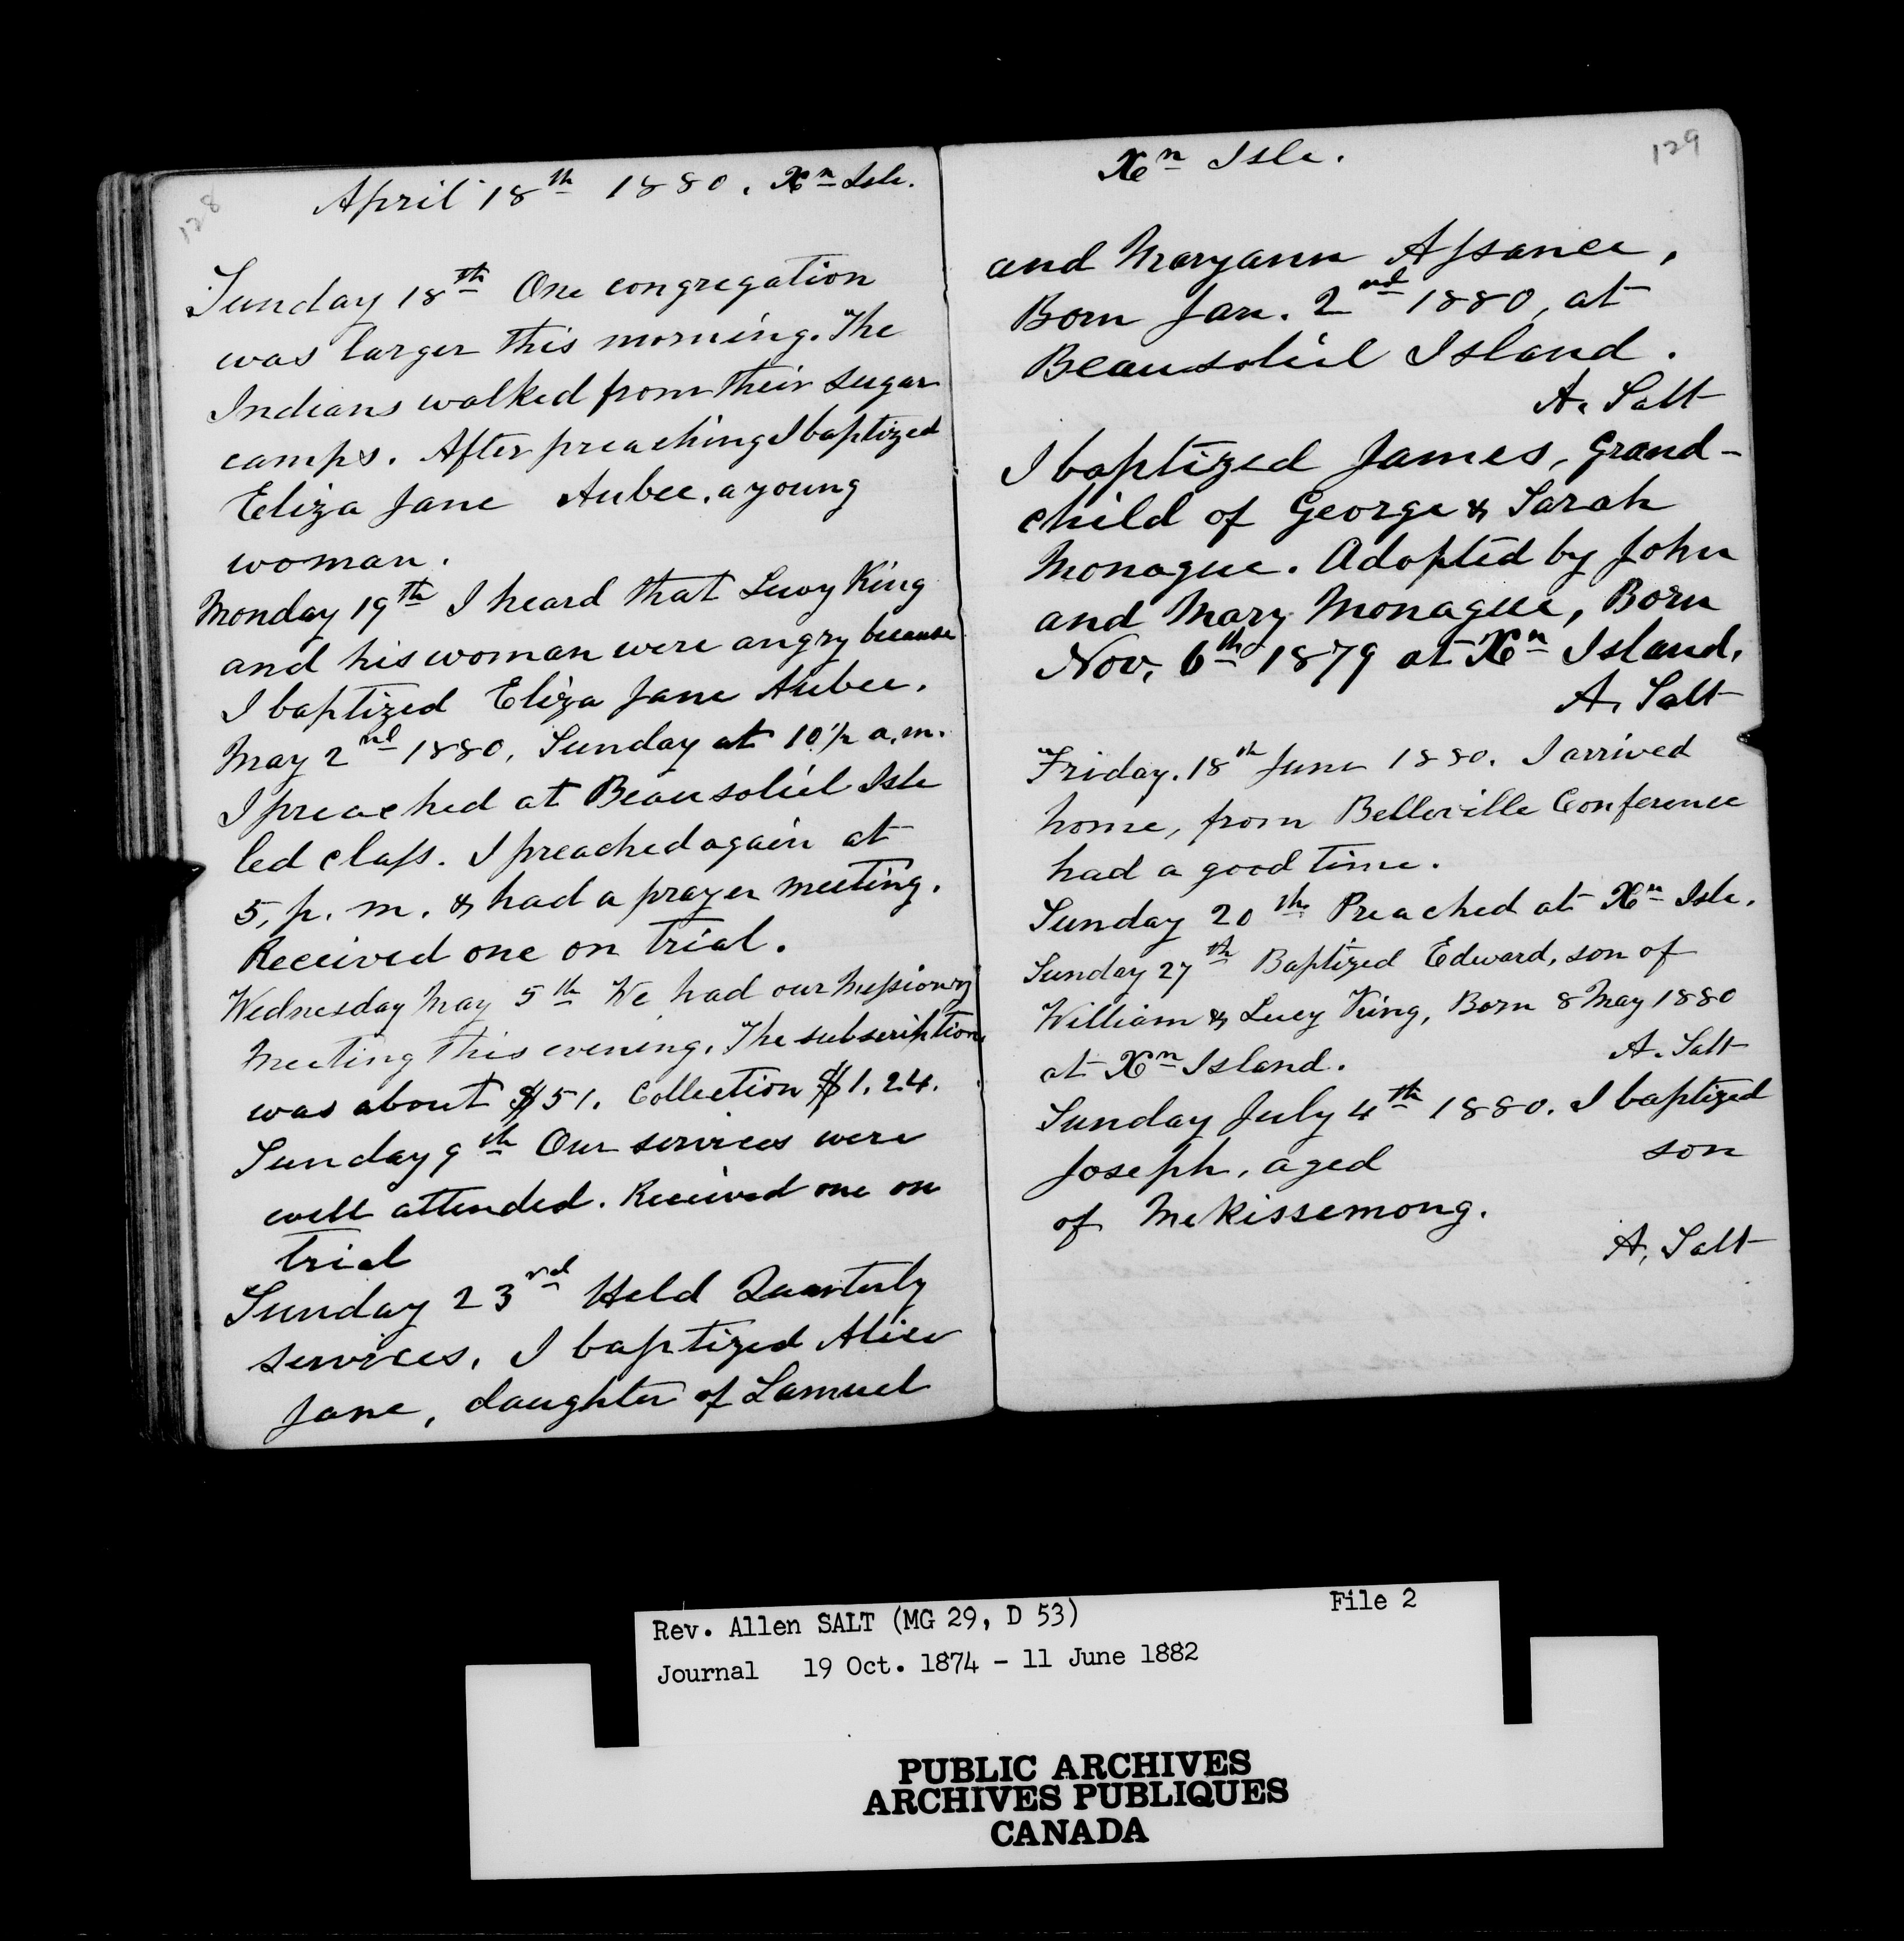 128
April 18th 1880. Xn Isle.
Sunday 18th One congregation
was larger this morning. The
Indians walked from their sugar
camps. After preaching I baptized
Eliza Jane Aubee, a young
woman.
Monday 19th I heard that Levvy King
and his woman were angry because
I baptized Eliza Jane Aubee.
May 2nd 1880, Sunday at 10 1/2 a.m.
I preached at Beausoliel Isle
led class. I preached again at
5, p. m. & had a prayer meeting.
Received one on trial.
Wednesday May 5th We had our Missionary
Meeting this evening. The subscription
was about $51. Collection $1.24.
Sunday 9th Our services were
well attended. Received one on
trial
Sunday 23rd Held Quarterly
services, I baptized Alice
Jane, daughter of Lamuel
129
Xn Isle.
and Maryann Assance,
Born Jan. 2nd 1880, at
Beausoliel Island.
A. Salt
I baptized James, Grand-
child of George & Sarah
Monague. Adopted by John
and Mary Monague, Born
Nov. 6th 1879 at Xn Island.
A. Salt
Friday. 18th June 1880. I arrived
home, from Belleville Conference
had a good time.
Sunday 20th Preached at Xn Isle.
Sunday 27th Baptized Edward, son of
William & Lucy King, Born 8 May 1880
at Xn Island. A. Salt
Sunday July 4th 1880. I baptized
Joseph, aged son
of Mekissemong.
A. Salt
Rev. Allen SALT (MG 29, D 53) File 2
Journal 19 Oct. 1874 - 11 June 1882
PUBLIC ARCHIVES
ARCHIVES PUBLIQUES
CANADA